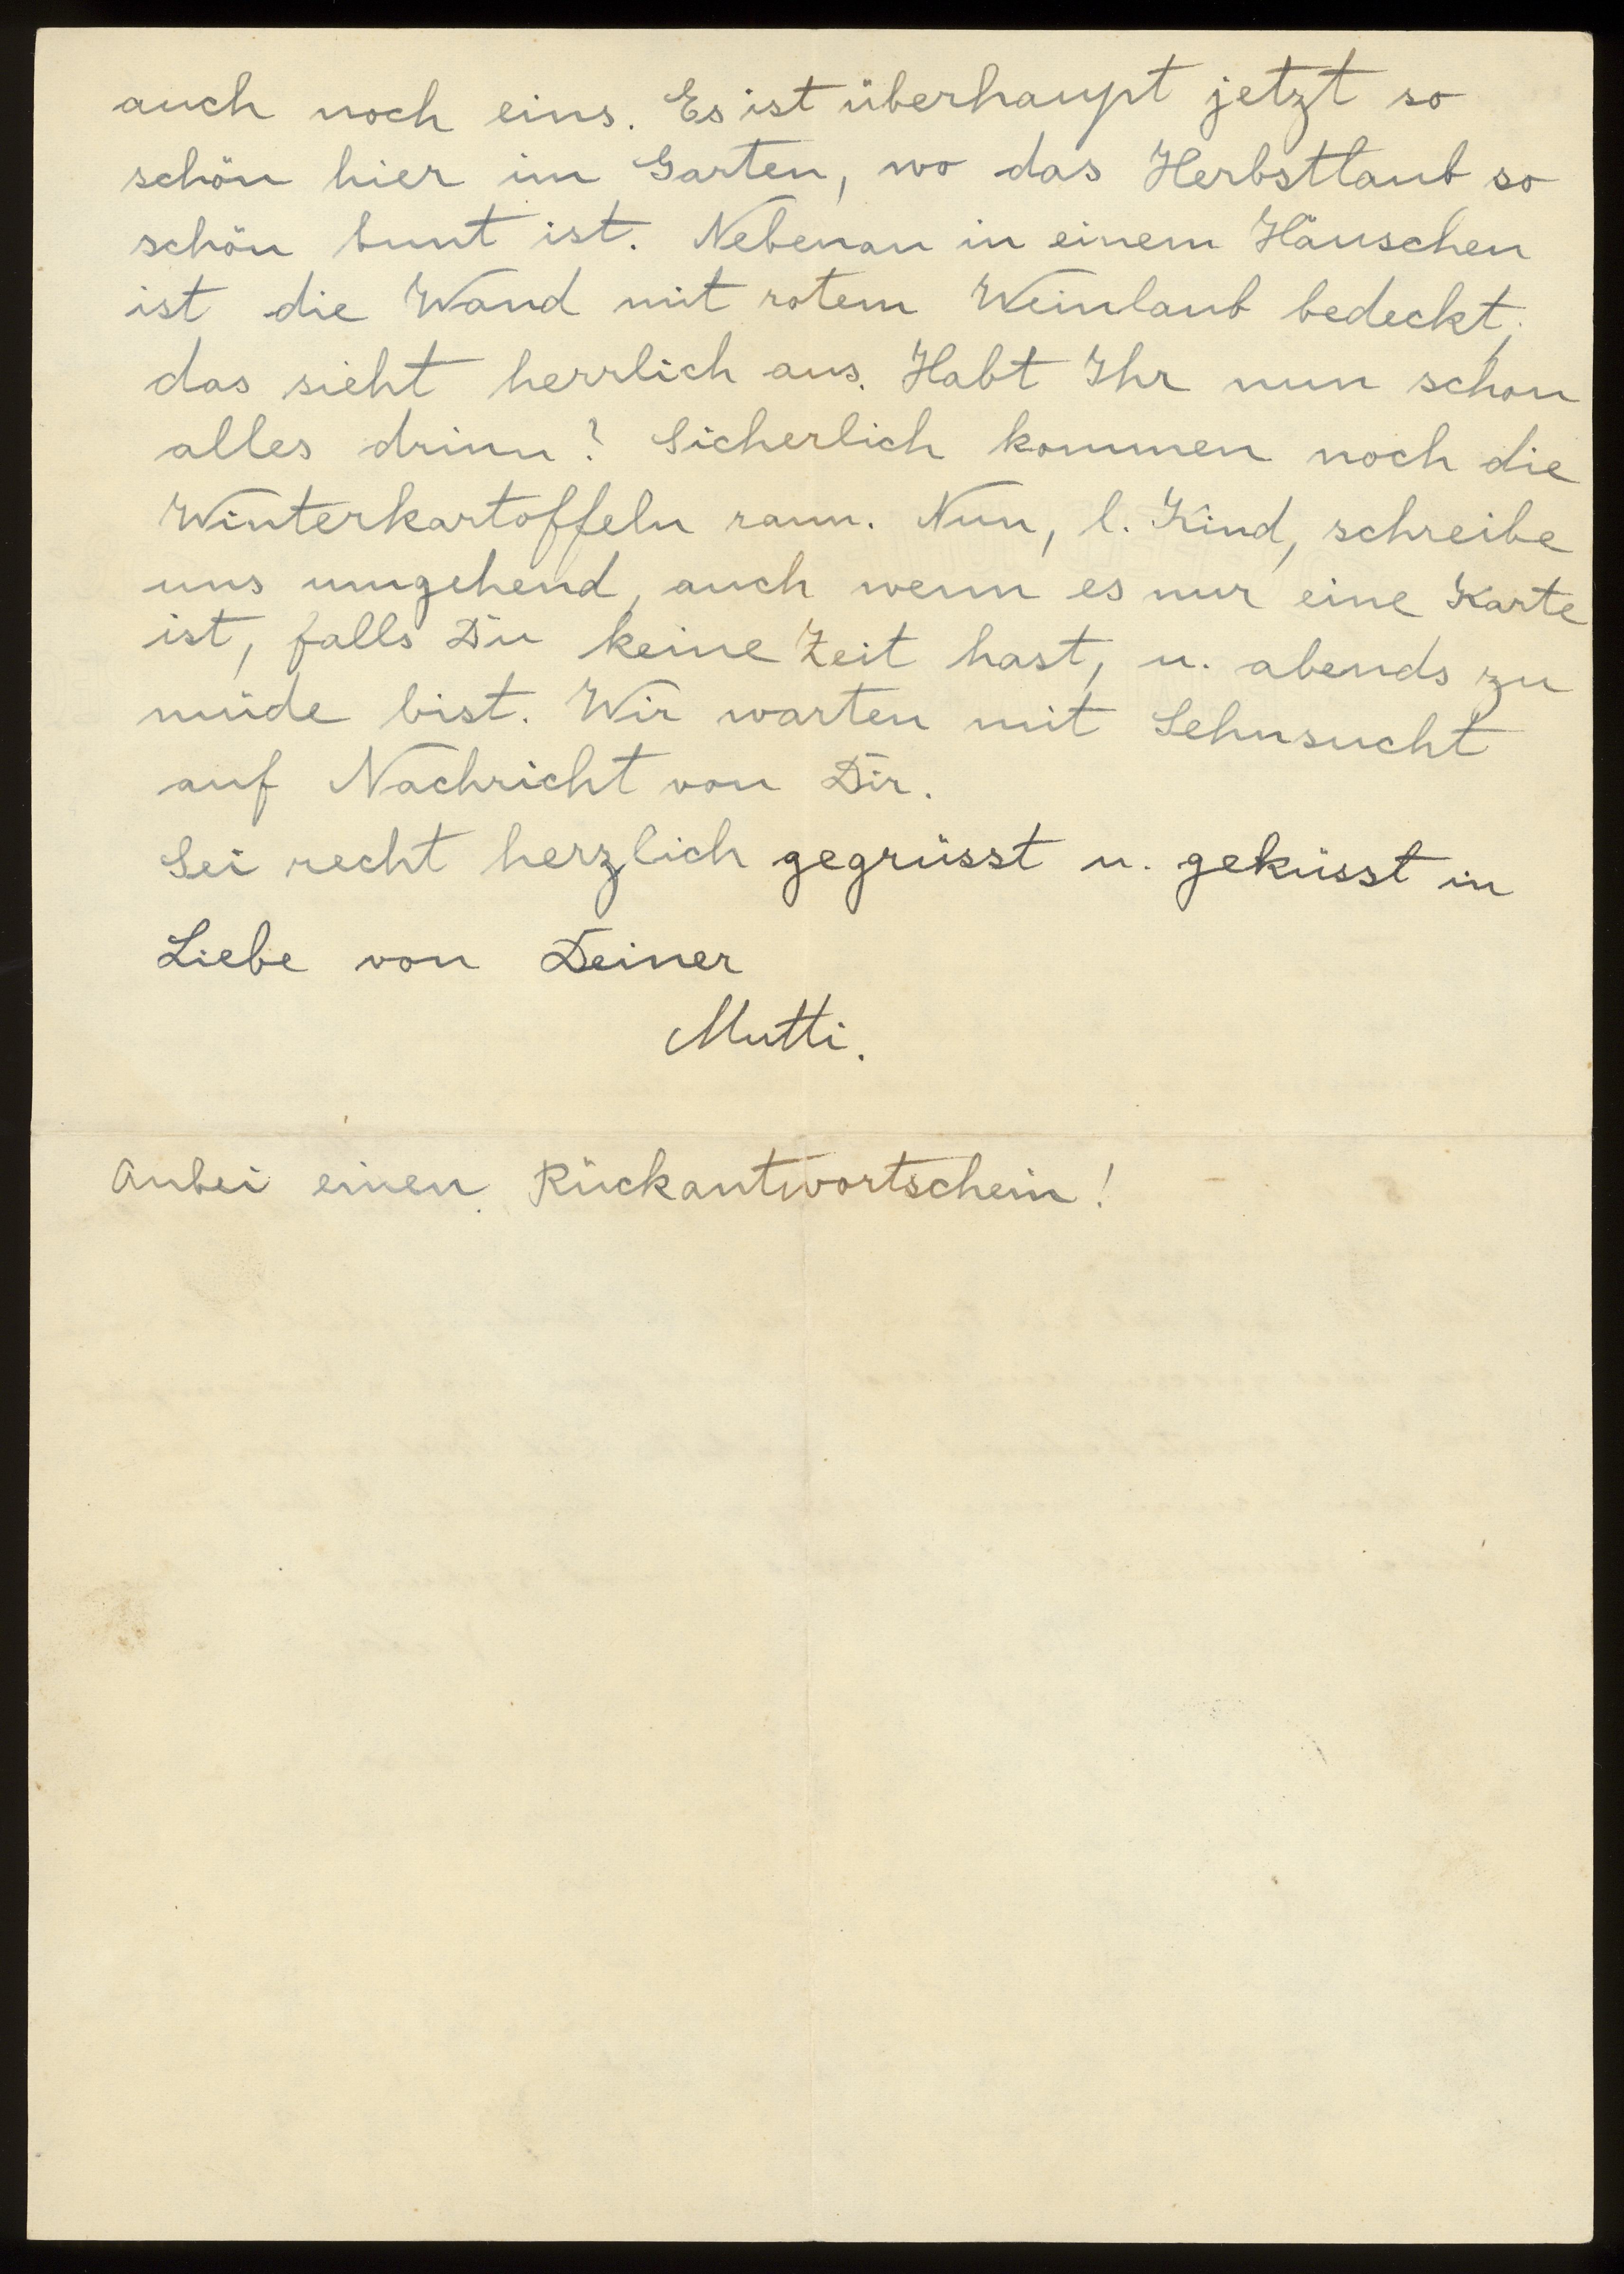 auch noch eins. Es ist überhaupt jetzt so
schön hier im Garten, wo das Herbstlaub so
schön bunt ist. Nebenan in einem Häuschen
ist die Wand mit rotem Weinlaub bedeckt,
das sieht herrlich aus. Habt Ihr nun schon
alles drinn? Sicherlich kommen noch die
Winterkartoffeln rann. Nun, l. Kind, schreibe
uns umgehend, auch wenn es nur eine Karte
ist, falls Du keine Zeit hast, u. abends zu
müde bist. Wir warten mit Sehnsucht
auf Nachricht von Dir.
Sei recht herzlich gegrüsst u. geküsst in
Liebe von Deiner
Mutti.
Anbei einen Rückantwortschein!